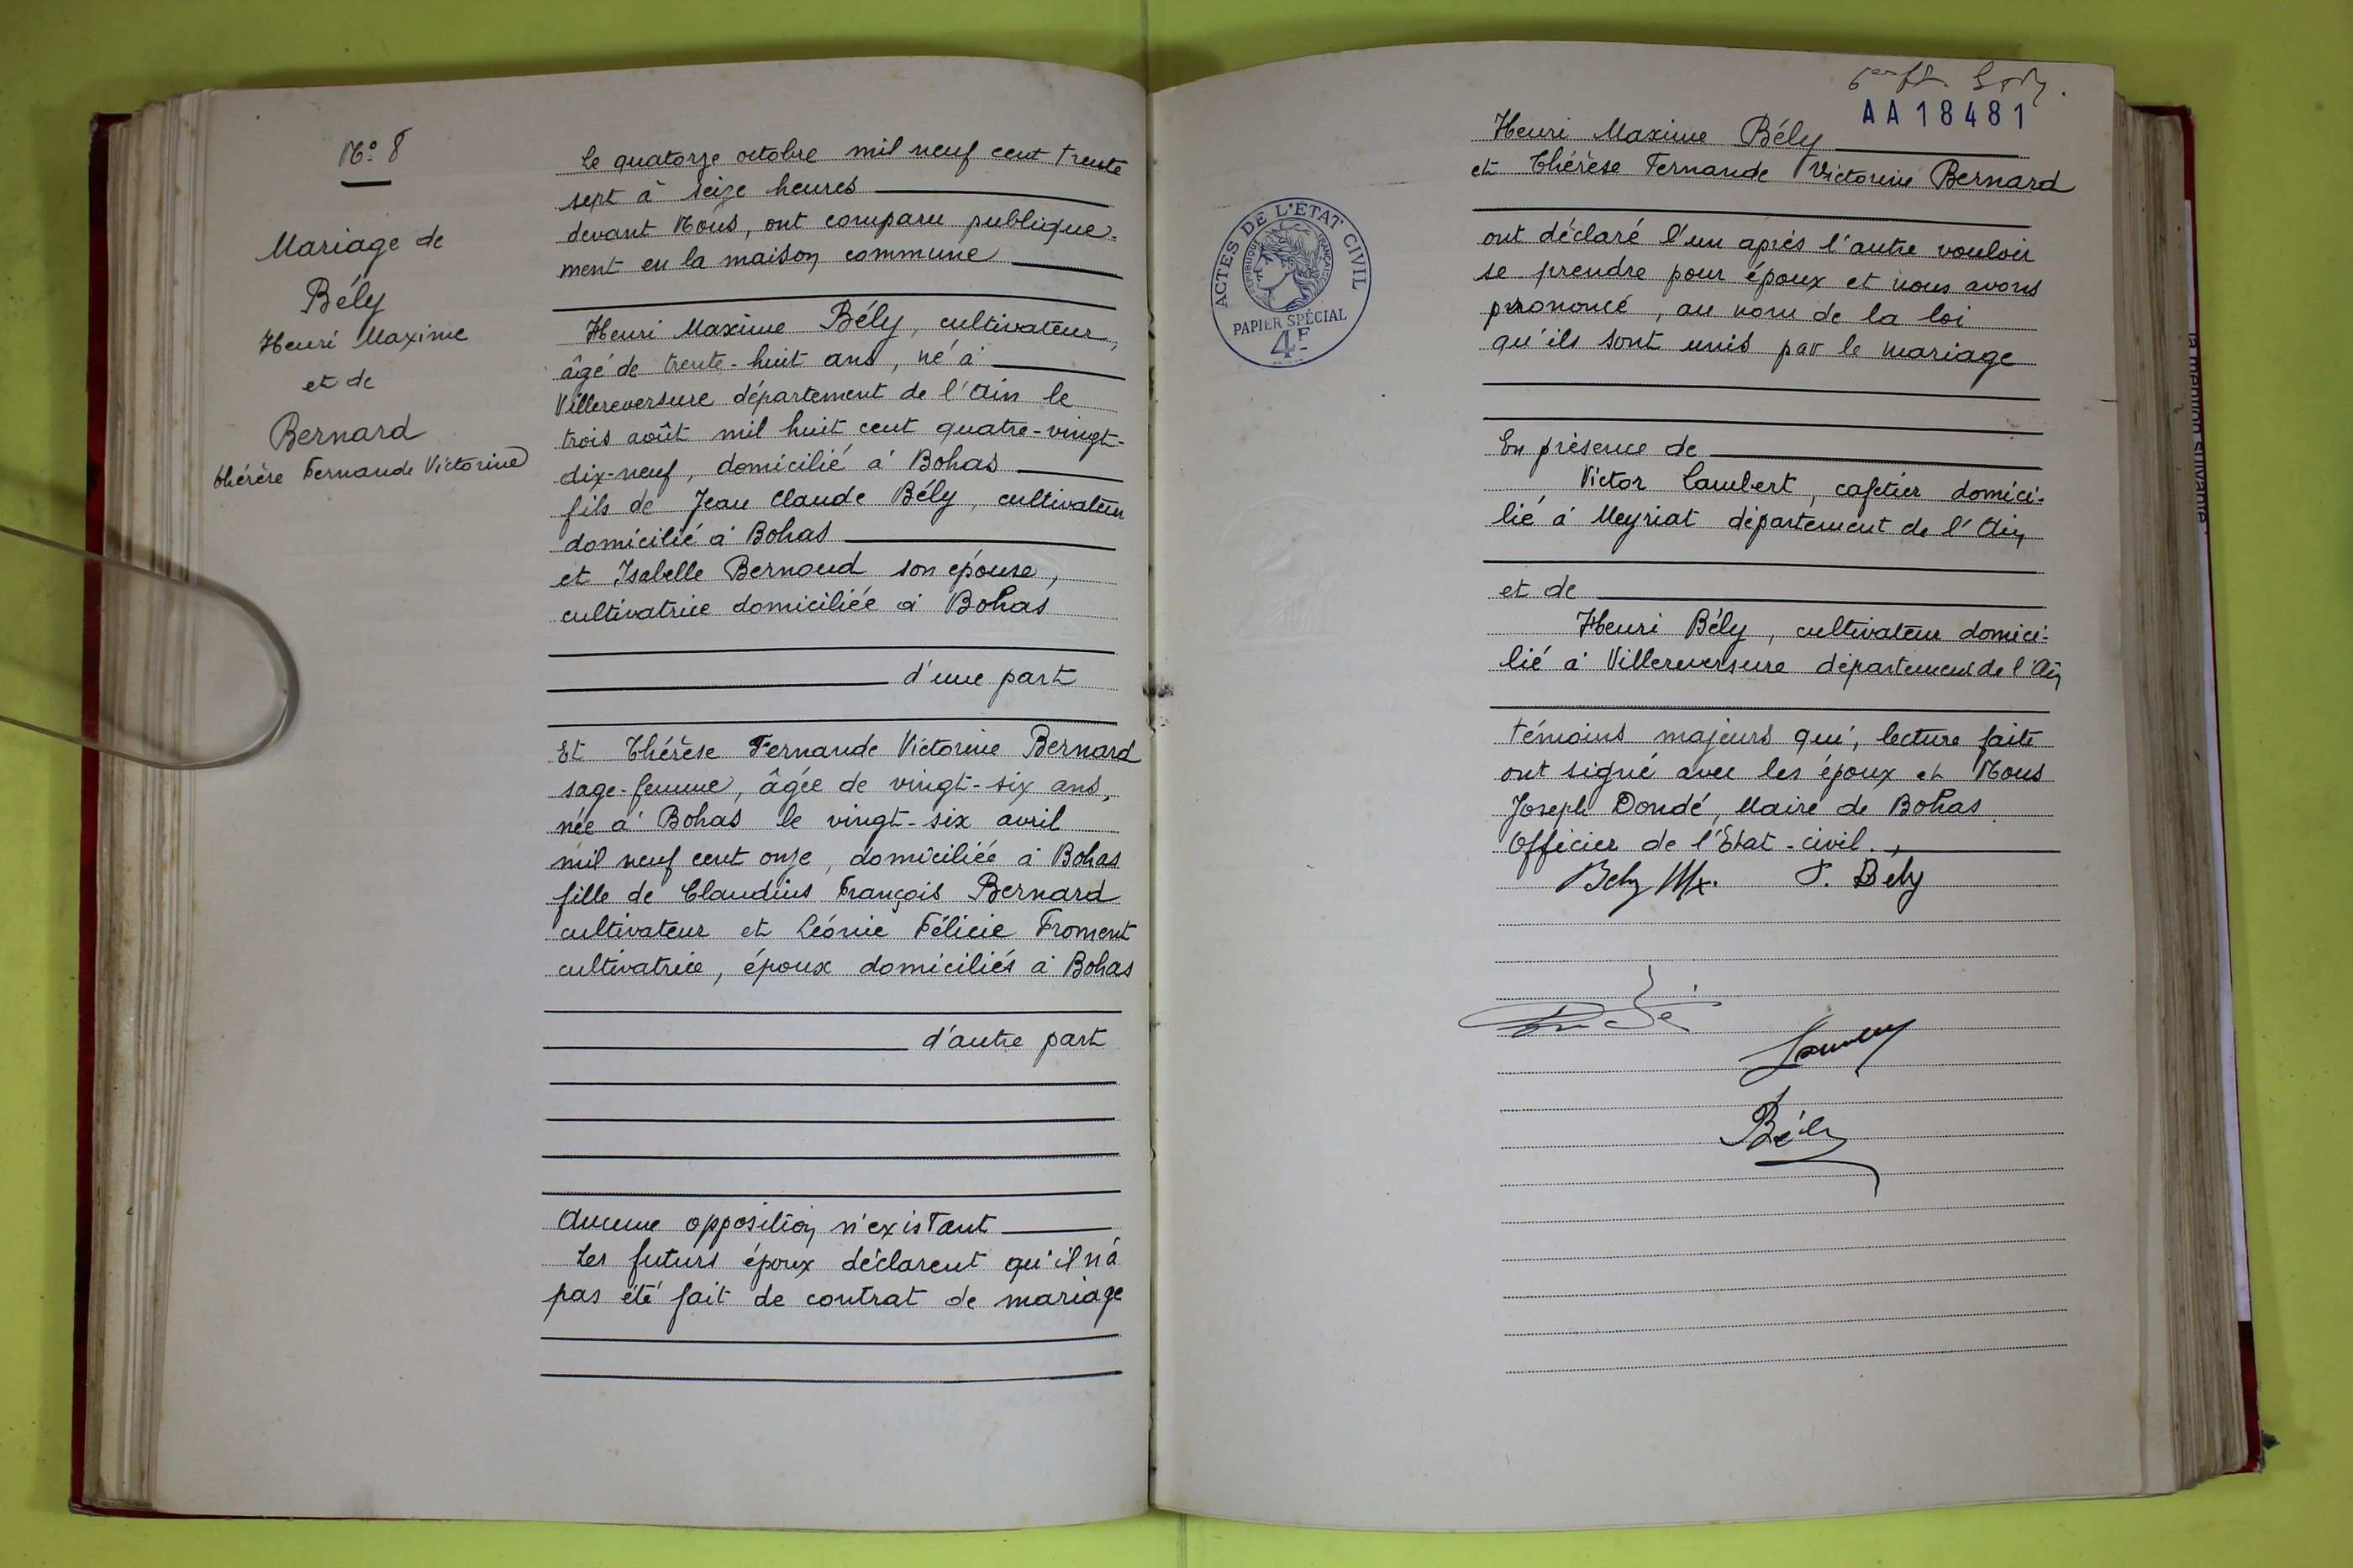 N° 8
Mariage de
Bély
Henri Maxime
et de
Bernard
Thérèse Fernande Victorine
Le quatorze octobre mil neuf cent trente
sept à seize heures
devant Nous, ont comparu publique-
ment en la maison commune
Henri Maxime Bély, cultivateur,
âgé de trente-huit ans, né à
Villereversure département de l'Ain le
trois août mil huit cent quatre-vingt-
dix-neuf, domicilié à Bohas
fils de Jean Claude Bély, cultivateur
domicilié à Bohas
et Isabelle Bernoud son épouse,
cultivatrice domiciliée à Bohas
d'une part
Et Thérèse Fernande Victorine Bernard
sage-femme, âgée de vingt-six ans,
née à Bohas le vingt-six avril
mil neuf cent onze, domiciliée à Bohas
fille de Claudius François Bernard
cultivateur et Léonie Félicie Froment
cultivatrice, époux domiciliés à Bohas
d'autre part
Aucune opposition n'existant
Les futurs époux déclarent qu'il n'a
pas été fait de contrat de mariage
AA18481
Henri Maxime Bély
et Thérèse Fernande Victorine Bernard
ACTES DE L'ETAT CIVIL
REPUBLIQUE FRANÇAISE
PAPIER SPÉCIAL
4F
ont déclaré l'un après l'autre vouloir
se prendre pour époux et nous avons
prononcé, au nom de la loi
qu'ils sont unis par le mariage
En présence de
Victor Lambert, cafetier domici-
lié à Meyriat département de l'Ain
et de
Henri Bély, cultivateur domici-
lié à Villereversure département de l'Ain
témoins majeurs qui, lecture faite
ont signé avec les époux et Nous
Joseph Dondé, Maire de Bohas
Officier de l'Etat-civil.
Bely Mx. T. Bély
Bély
la mention suivante